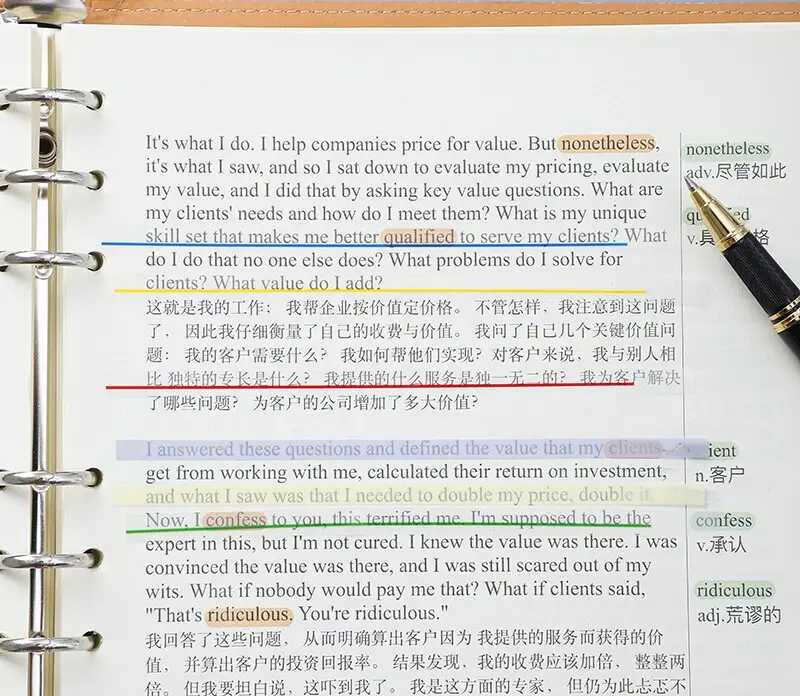 It's what I do. I help companies price for value. But nonetheless,
it's what I saw, and so I sat down to evaluate my pricing, evaluate
my value, and I did that by asking key value questions. What are
my clients' needs and how do I meet them? What is my unique
skill set that makes me better qualified to serve my clients? What
do I do that no one else does? What problems do I solve for
clients? What value do I add?
这就是我的工作； 我帮企业按价值定价格。 不管怎样，我注意到这问题
了， 因此我仔细衡量了自己的收费与价值。 我问了自己几个关键价值问
题： 我的客户需要什么？ 我如何帮他们实现？对客户来说，我与别人相
比 独特的专长是什么？ 我提供的什么服务是独一无二的？ 我为客户解决
了哪些问题？ 为客户的公司增加了多大价值？
I answered these questions and defined the value that my clients
get from working with me, calculated their return on investment,
and what I saw was that I needed to double my price, double it.
Now, I confess to you, this terrified me. I'm supposed to be the
expert in this, but I'm not cured. I knew the value was there. I was
convinced the value was there, and I was still scared out of my
wits. What if nobody would pay me that? What if clients said,
"That's ridiculous. You're ridiculous."
我回答了这些问题， 从而明确算出客户因为 我提供的服务而获得的价
值， 并算出客户的投资回报率。 结果发现，我的收费应该加倍， 整整两
倍。 但我要坦白说，这吓到我了。 我是这方面的专家， 但仍为此忐忑不
nonetheless
adv.尽管如此
n.客户
confess
v.承认
ridiculous
adj.荒谬的